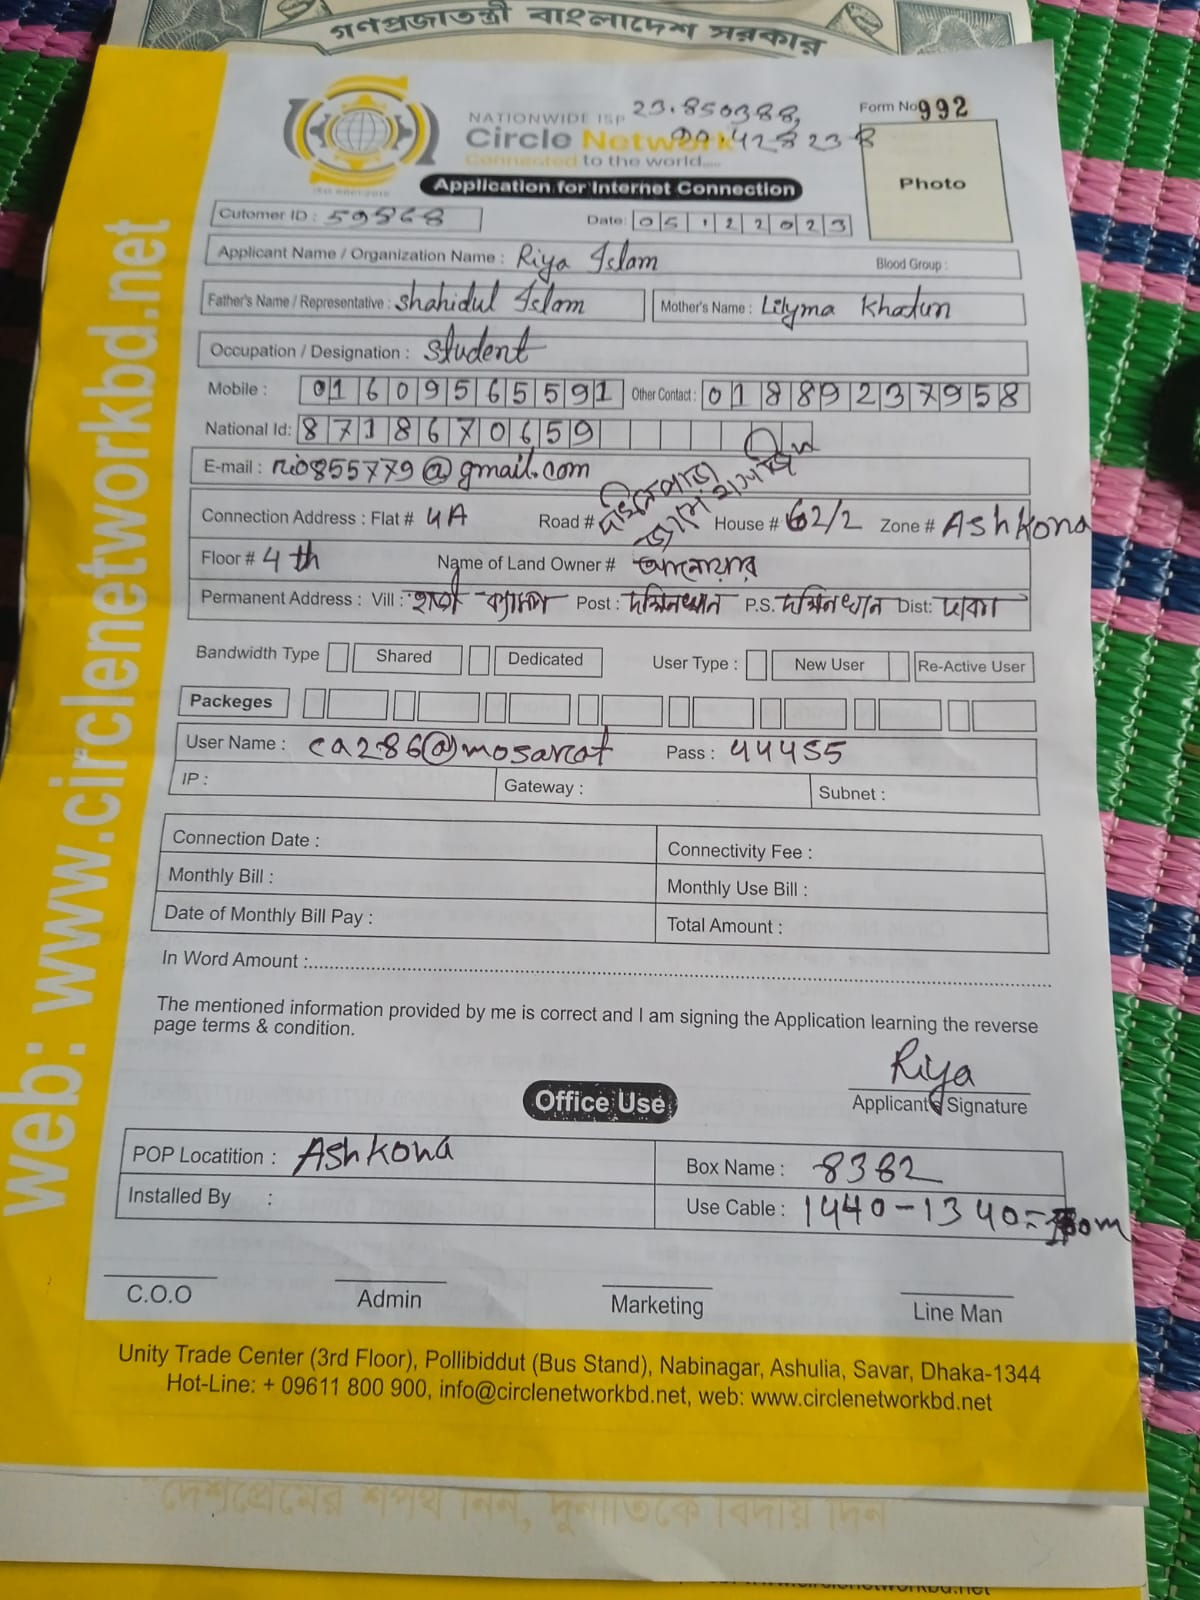 গণপ্রজাতন্ত্রী বাংলাদেশ সরকার
web: www.circlenetworkbd.net
NATIONWIDE ISP 23.850388,
Form No 992
Circle Network 90.428238
Connected to the world.....
Photo
Application for Internet Connection
Cutomer ID : 59868 Date: 05122023
Applicant Name / Organization Name : Riya Islam Blood Group :
Father's Name / Representative : Shahidul Islam Mother's Name : Lilyma Khatun
Occupation / Designation : Student
Mobile : 01609565591 Other Contact : 01889237958
National Id: 8718670659
E-mail : rio855779@gmail.com
Connection Address : Flat # 4A Road # House # 62/2 Zone # Ashkona
Floor # 4th Name of Land Owner # আনোয়ার
Permanent Address : Vill : হাজী ক্যাম্প Post : দক্ষিনখান P.S. দক্ষিনখান Dist: ঢাকা
Bandwidth Type Shared Dedicated User Type : New User Re-Active User
Packeges
User Name : ca286@mosarat Pass : 44455
IP : Gateway : Subnet :
Connection Date : Connectivity Fee :
Monthly Bill : Monthly Use Bill :
Date of Monthly Bill Pay : Total Amount :
In Word Amount :
The mentioned information provided by me is correct and I am signing the Application learning the reverse
page terms & condition.
Riya
Applicant Signature
Office Use
POP Locatition : Ashkona Box Name : 8382
Installed By : Use Cable : 1440-1340=
C.O.O Admin Marketing Line Man
Unity Trade Center (3rd Floor), Pollibiddut (Bus Stand), Nabinagar, Ashulia, Savar, Dhaka-1344
Hot-Line: + 09611 800 900, info@circlenetworkbd.net, web: www.circlenetworkbd.net
"দেশপ্রেমের শপথ নিন, দুর্নীতিকে বিদায় দিন